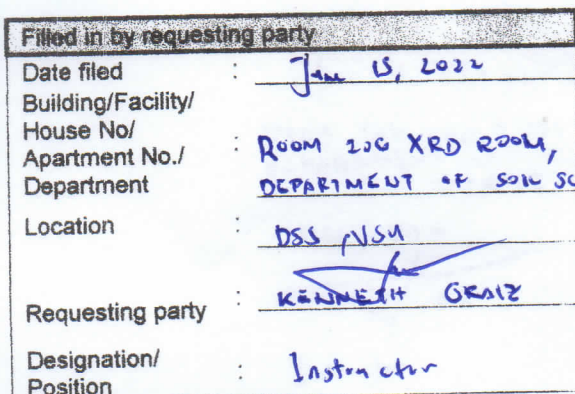 Filled in by requesting party
Date filed : 15, 2022
Building/Facility/
House No/
Apartment No./
Department : ROOM XRD ROOM,
DEPARTMENT OF SOIL SC
Location : DSS, VSU
Requesting party : KENNETH
Designation/
Position : Instructor